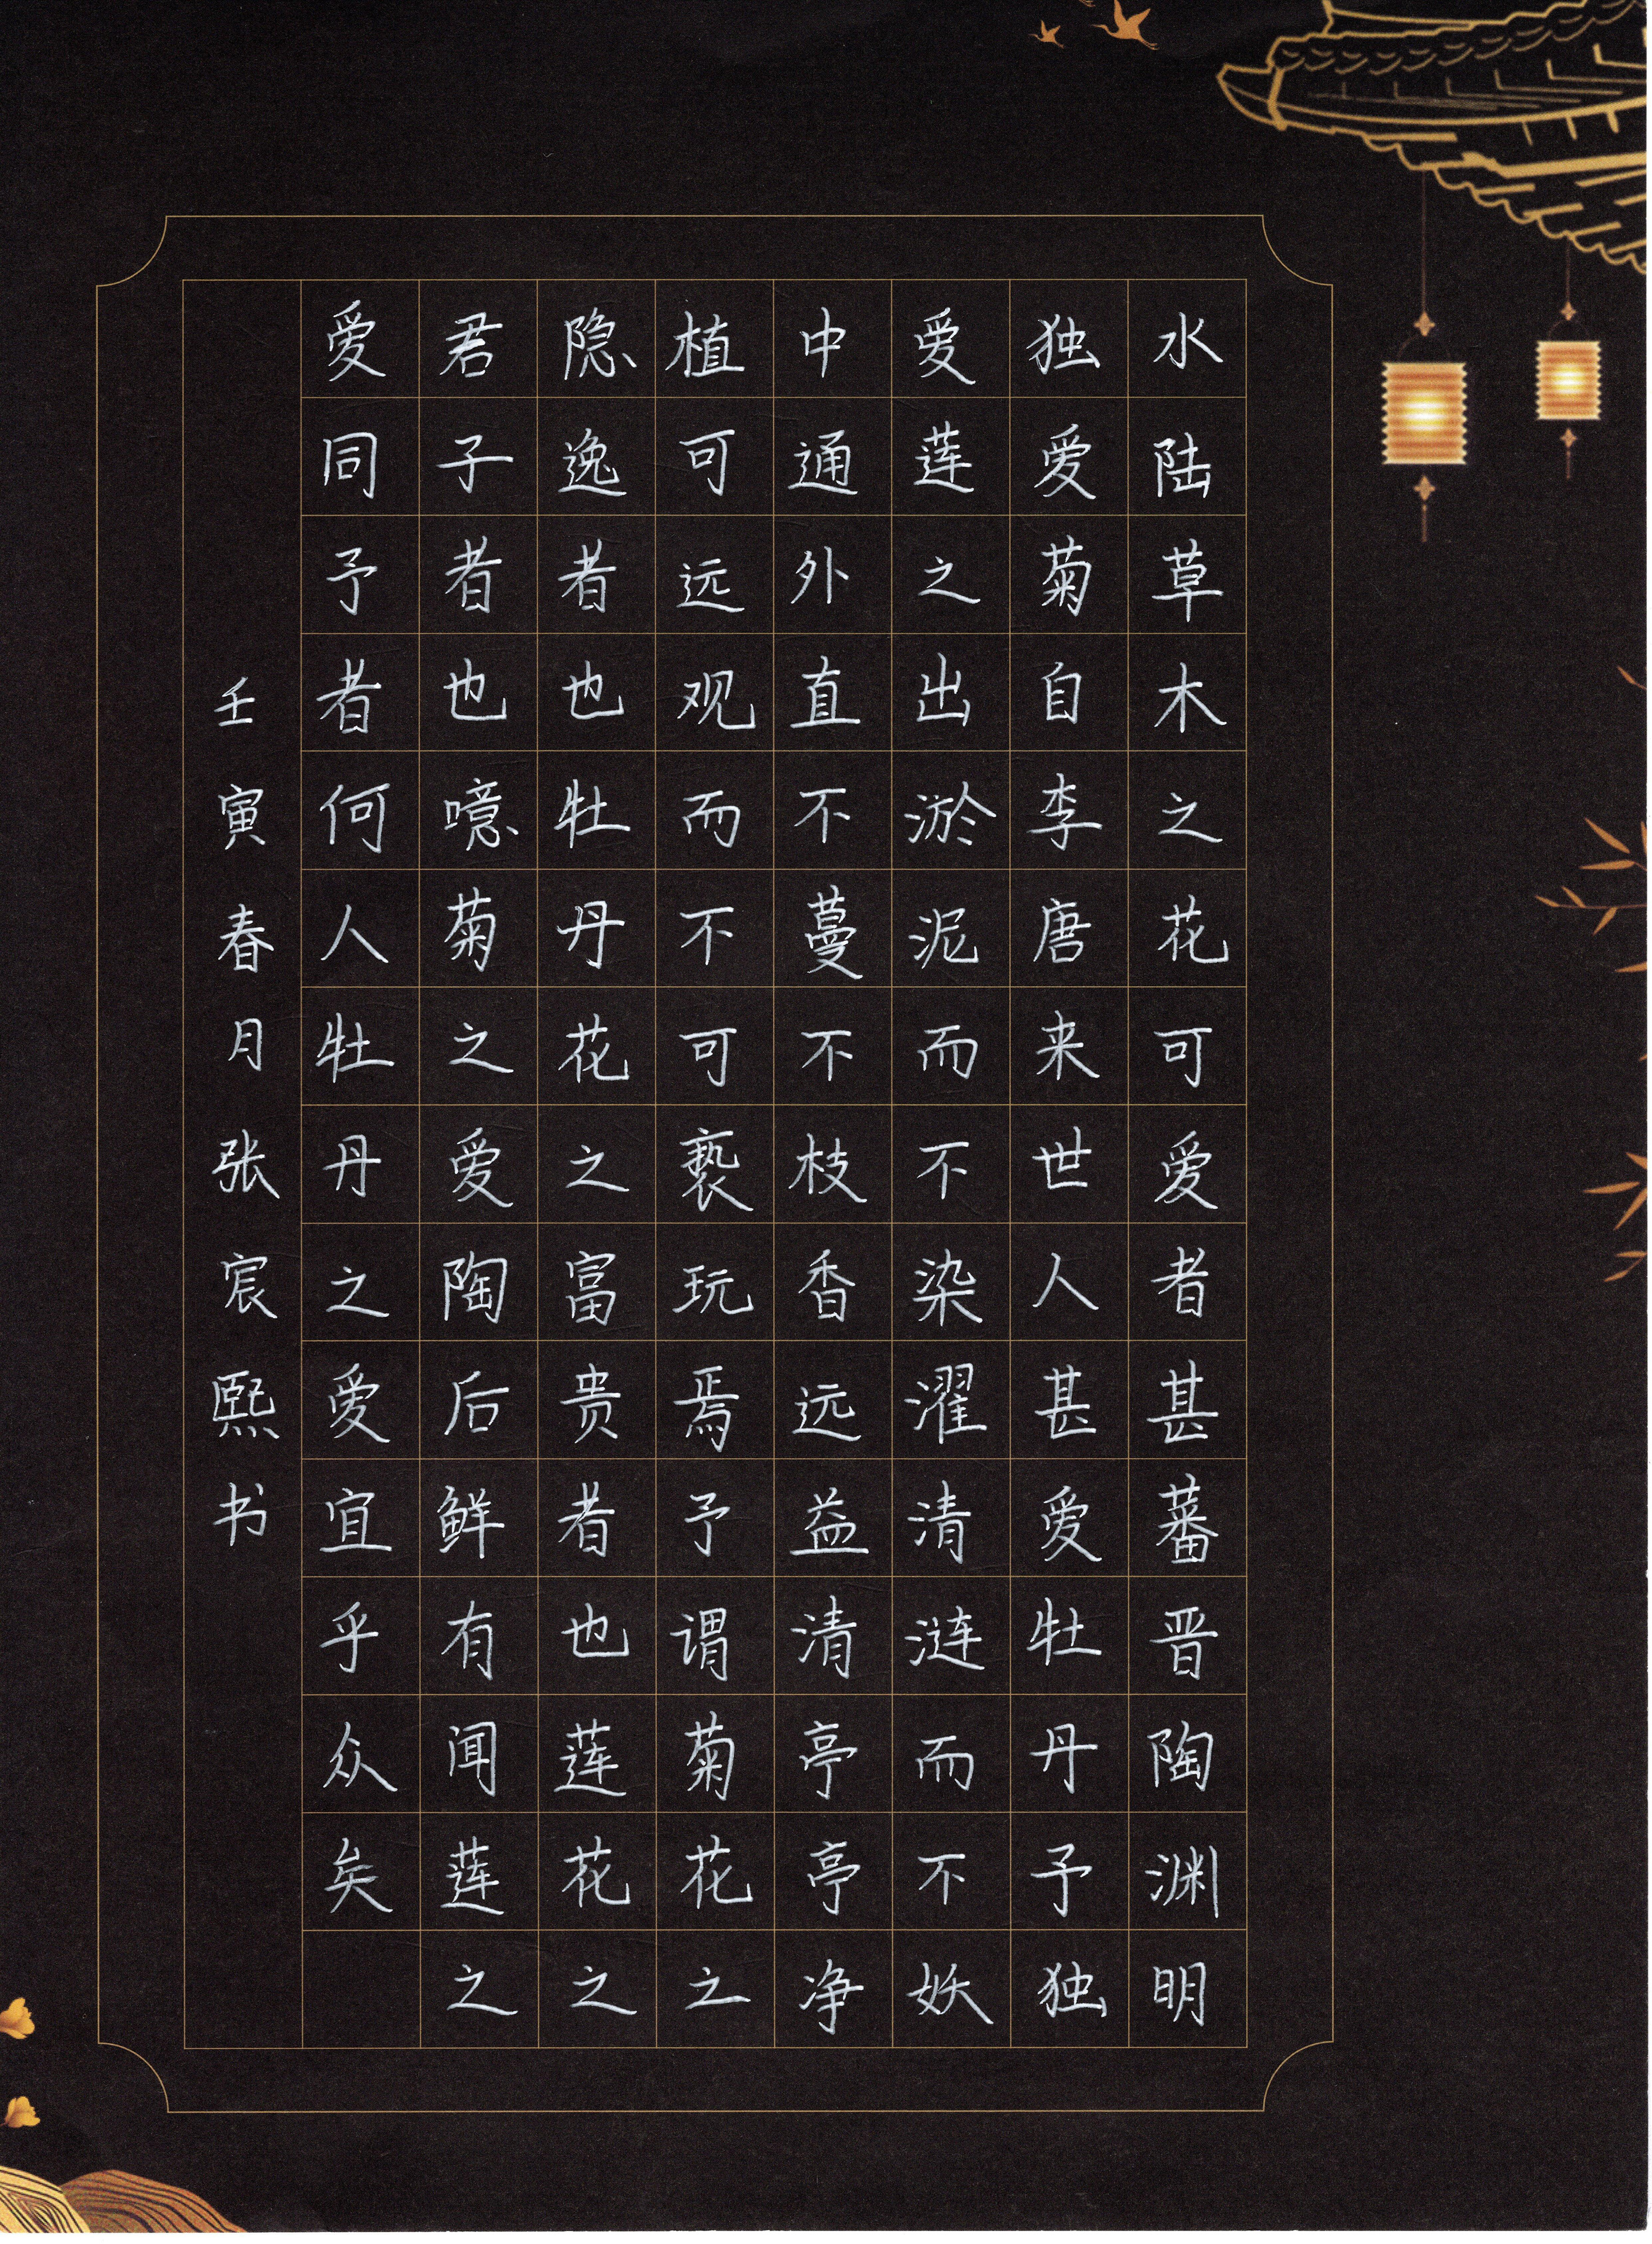 水陆草木之花可爱者甚蕃晋陶渊明
独爱菊自李唐来世人甚爱牡丹予独
爱莲之出淤泥而不染濯清涟而不妖
中通外直不蔓不枝香远益清亭亭净
植可远观而不可亵玩焉予谓菊花之
隐逸者也牡丹花之富贵者也莲花之
君子者也噫菊之爱陶后鲜有闻莲之
爱同予者何人牡丹之爱宜乎众矣
壬寅春月张宸熙书